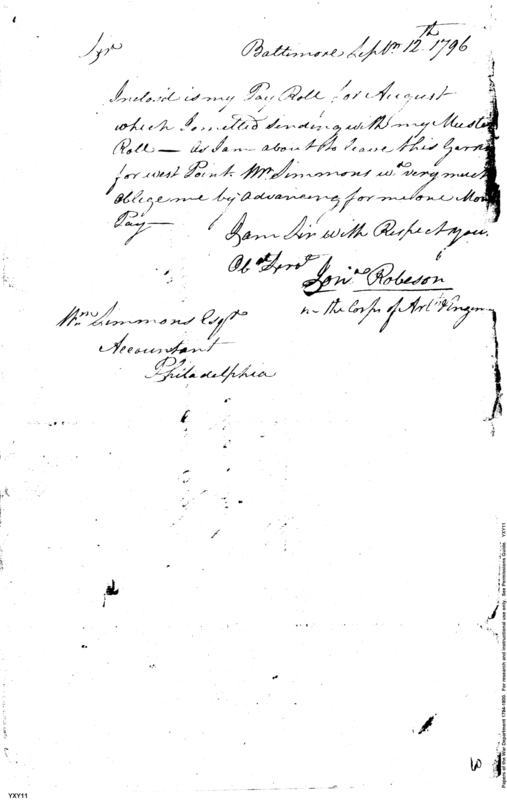 Baltimore Septm 12th 1796
Sir
Inclosd is my Pay Roll for August
which I omitted sending with my Muster
Roll — as I am about to leave this Garri
for west Point Mr Simmons wd very much
oblige me by advancing for me one Mon
Pay
I am Sir with Respect your
Obt Servt
Jona Robeson
in the Corps of Art & Engin
Wm Simmons Esqr
Accountant
Philadelphia
Papers of the War Department 1784-1800. For research and instructional use only. See Permissions Guide. YXY11
YXY11